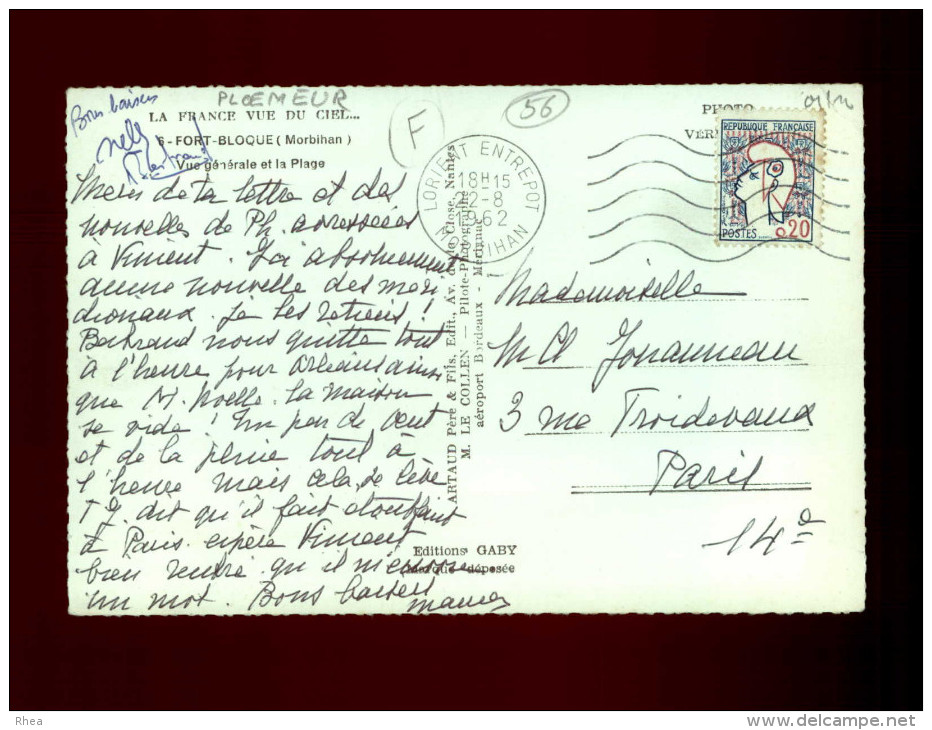 PLOEMEUR
Bons baisers
LA FRANCE VUE DU CIEL...
6 - FORT-BLOQUE (Morbihan)
Vue générale et la Plage
Bertrand
F
56
PHOTO
LORIENT ENTREPOT
18H15
2-8
1962
MORBIHAN
REPUBLIQUE FRANÇAISE
POSTES
0,20
Merci de ta lettre et des
nouvelles de Ph. adressées
à Vincent. J'ai absolument
aucune nouvelle des méri
dionaux. Je les retiens !
Bertrand nous quitte tout
à l'heure pour Orléans ainsi
que M. Noëlle. La maison
se vide ! Un peu de vent
et de la pluie tout à
l'heure mais cela se lève
dit qu'il fait étouffant
à Paris. espère Vincent
bien rendre qu'il
un mot. Bons baisers
ARTAUD Père & Fils, Edit., Av. de la Close, Nantes
M. LE COLLEN — Pilote-Photographe
aéroport Bordeaux - Mérignac
Editions GABY
Marque déposée
Mademoiselle
M Cl Johanneau
3 rue Froidevaux
Paris
14e
Rhea
www.delcampe.net